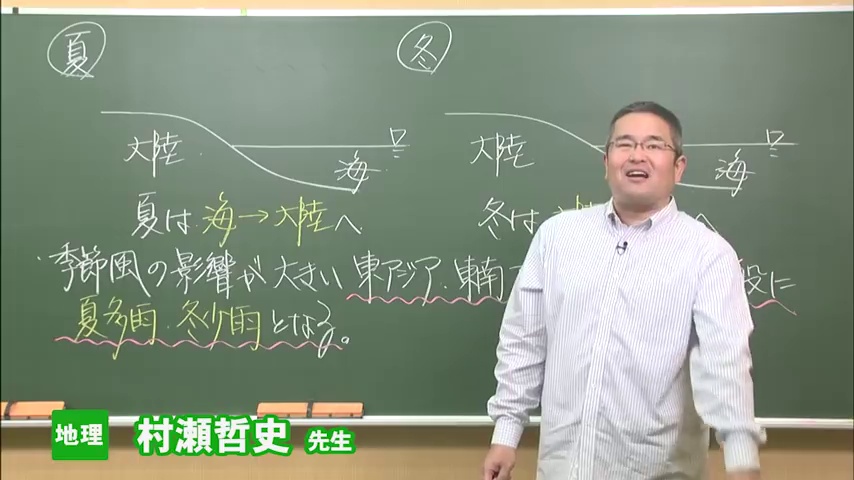 夏
冬
大陸
海
大陸
海
夏は 海→大陸へ
冬は 大陸 へ
季節風の影響が大きい東アジア・東南
夏多雨・冬少雨となる。
地理 村瀬哲史 先生